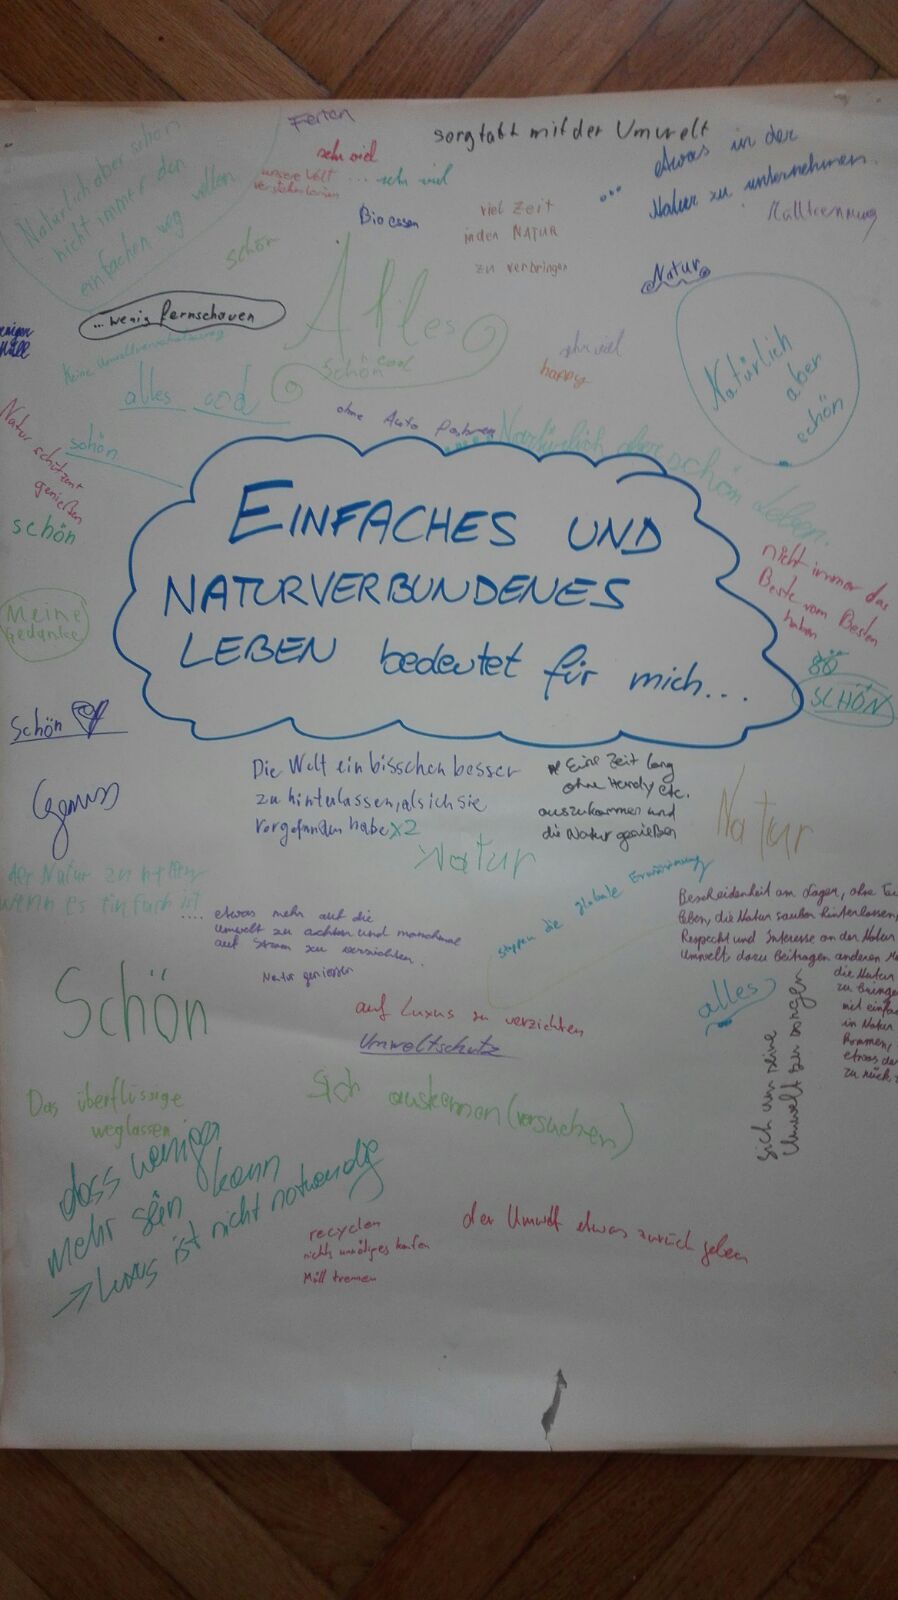 Ferien
sorgfalt mit der Umwelt
Natürlich aber schön
nicht immer den
einfachen weg wollen
sehr viel
unsere Welt
... sehr viel
etwas in der
Natur zu unternehmen.
Bio essen
viel Zeit
in den NATUR
zu verbringen
Mülltrennung
schön
Natur
... wenig fernschauen
Alles
schön cool
weniger
Müll
Keine Umweltverschmutzung
sehr viel
happy
Natürlich
aber
schön
alles cool
ohne Auto
schön
Natürlich aber schön Leben.
Natur schützen
genießen
schön
EINFACHES UND
NATURVERBUNDENES
LEBEN bedeutet für mich...
nicht immer das
Beste vom Besten
haben
Meine
Gedanke
SCHÖN
Schön
Genuss
Die Welt ein bisschen besser
zu hintulassen, als ich sie
vorgefunden habe x2
Eine Zeit lang
ohne Handy etc.
auszukommen und
die Natur genießen
Natur
Natur
der Natur zu helfen
wenn es einfach ist
.... etwas mehr auf die
Umwelt zu achten und manchmal
auf Strom zu verzichten.
Natur genießen
stoppen die globale Erwärmung
Bescheidenheit am Lager, ohne
leben, die Natur sauber hinterlassen,
Respecht und Interesse an der Natur
Umwelt, dazu Beitragen anderen
die Natur
zu bringen
mit einfa
in Natur
kommen,
etwas da
zu rück
Schön
auf Luxus zu verzichten
Umweltschutz
alles
sich um seine
Umwelt zu sorgen
Das überflüssige
weglassen
Sich auskennen (versuchen)
dass weniger
mehr sein kann
→ Luxus ist nicht notwendig
der Umwelt etwas zurück geben
recyclen
nichts unnötiges kaufen
Müll trennen